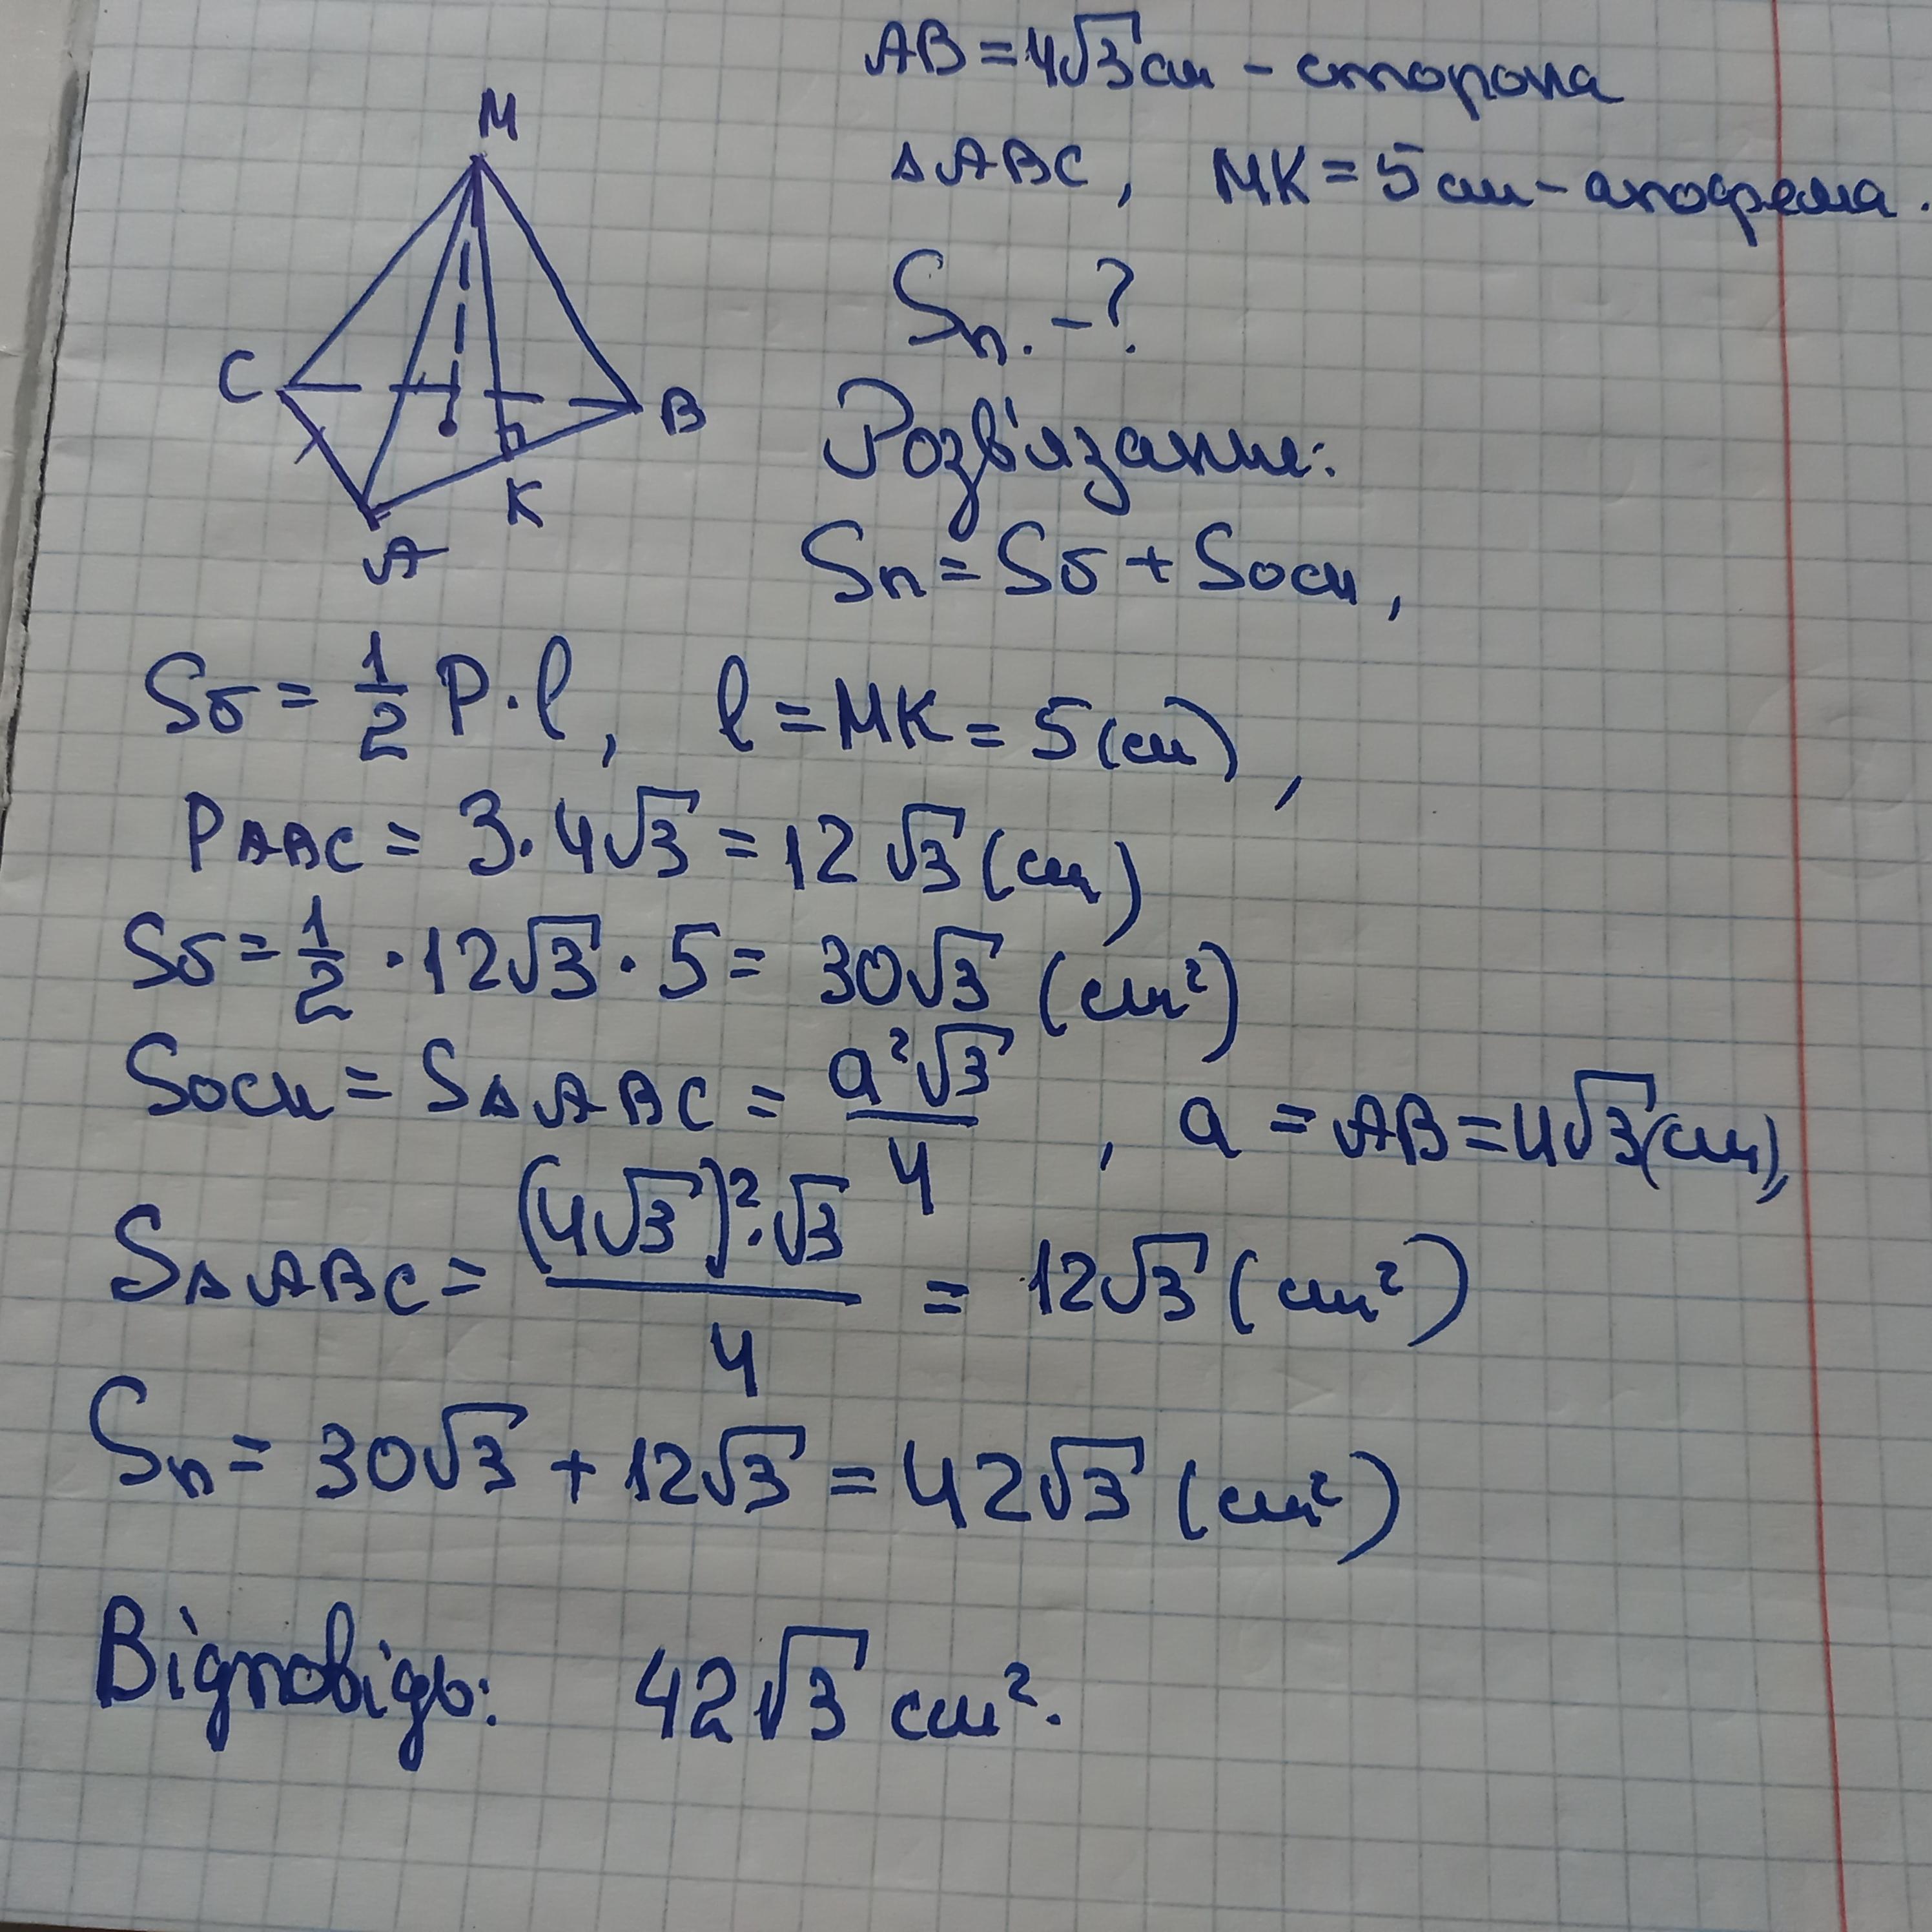 AB = 4√3 см - сторона
△ABC, MK = 5 см - апофема.
Sп. - ?
Розв'язання:
Sп = Sб + Sосн,
M
C
B
K
A
Sб = 1/2 P · l, l = MK = 5 (см),
P ABC = 3 · 4√3 = 12√3 (см)
Sб = 1/2 · 12√3 · 5 = 30√3 (см²)
Sосн = S△ABC = a²√3/4, a = AB = 4√3 (см),
S△ABC = (4√3)² · √3/4 = 12√3 (см²)
Sп = 30√3 + 12√3 = 42√3 (см²)
Відповідь: 42√3 см².